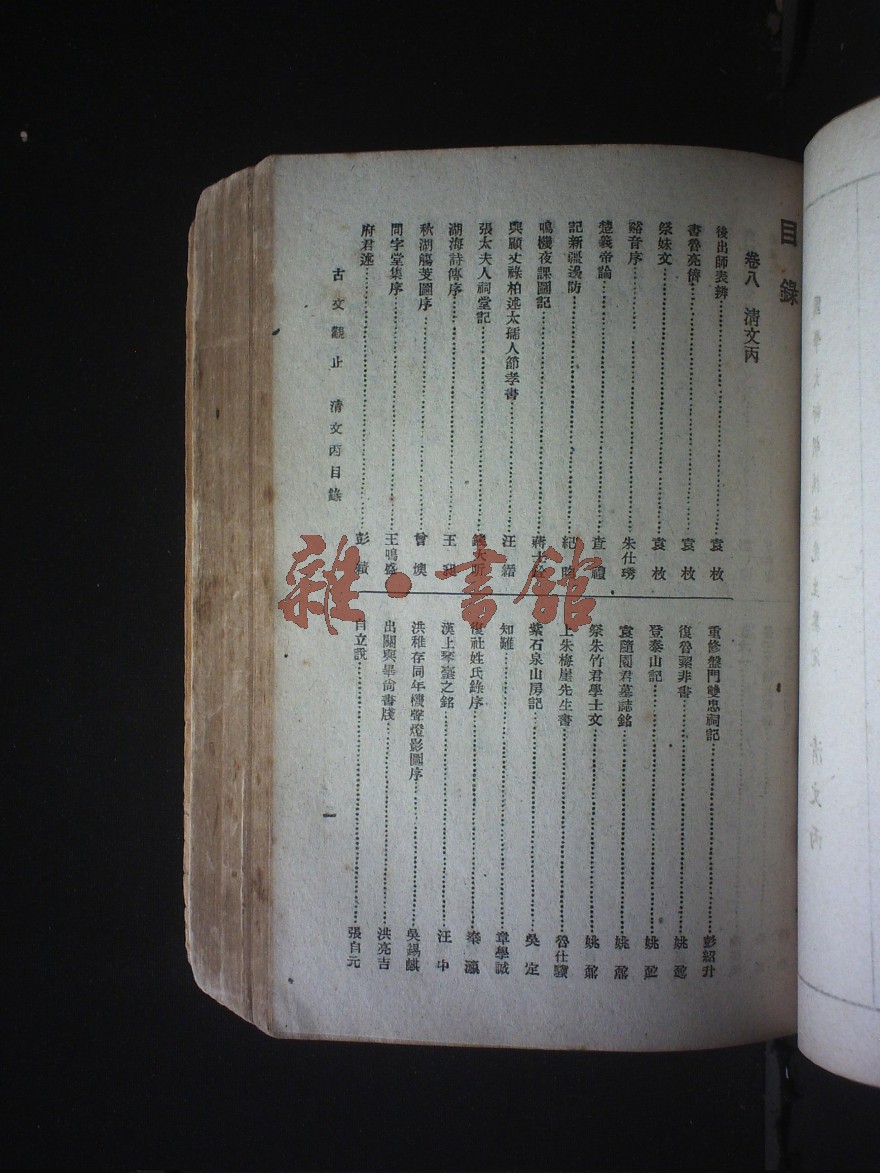 目錄
卷八　清文丙
後出師表辨……袁枚
書魯亮儕……袁枚
祭妹文……袁枚
谿音序……朱仕琇
楚義帝論……查禮
記新疆邊防……紀昀
鳴機夜課圖記……蔣士銓
與顧丈祿柏述太孺人節孝書……汪縉
張太夫人祠堂記……錢大昕
湖海詩傳序……王昶
秋湖觴芰圖序……曾燠
問字堂集序……王鳴盛
府君述……彭績
重修盤門雙忠祠記……彭紹升
復魯絜非書……姚鼐
登泰山記……姚鼐
袁隨園君墓誌銘……姚鼐
祭朱竹君學士文……姚鼐
上朱梅崖先生書……魯仕驥
紫石泉山房記……吳定
知難……章學誠
復社姓氏錄序……秦瀛
漢上琴臺之銘……汪中
洪稚存同年機聲燈影圖序……吳錫麒
出關與畢尚書牋……洪亮吉
自立說……張自元
古文觀止　清文丙目錄
一
雜·書館
清文丙